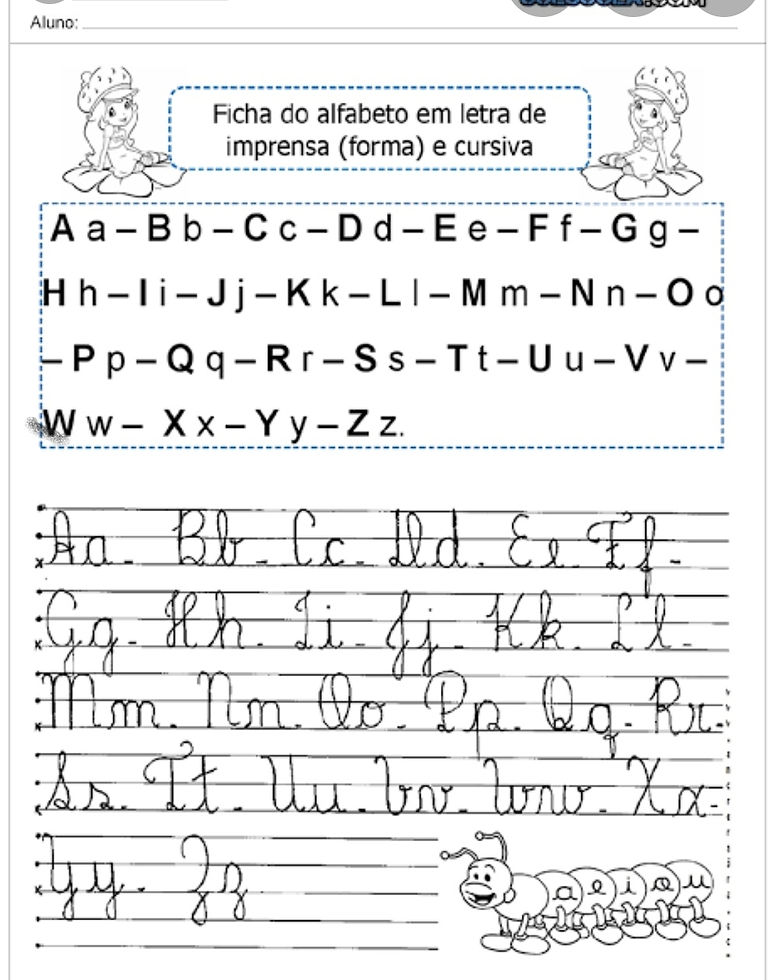 Aluno:
Ficha do alfabeto em letra de
imprensa (forma) e cursiva
A a – B b – C c – D d – E e – F f – G g –
H h – I i – J j – K k – L l – M m – N n – O o
– P p – Q q – R r – S s – T t – U u – V v –
W w – X x – Y y – Z z.
Aa - Bb - Cc - Dd - Ee - Ff -
Gg - Hh - Ii - Jj - Kk - Ll -
Mm - Nn - Oo - Pp - Qq - Rr -
Ss - Tt - Uu - Vv - Ww - Xx -
Yy - Zz
a e i o u